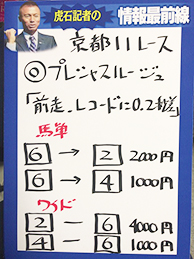 虎石記者の 情報最前線
京都11レース
◎プレシャスルージュ
「前走、レコードに0.2差」
馬単
6→2 2000円
6→4 1000円
ワイド
2-6 4000円
4-6 1000円